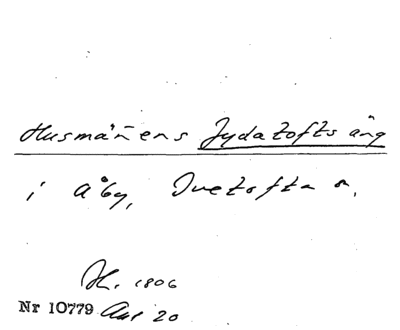 Husmänens Jydatofts äng
i Åby, Ivetofta s.
H. 1806
Nr 10779 Akt 20